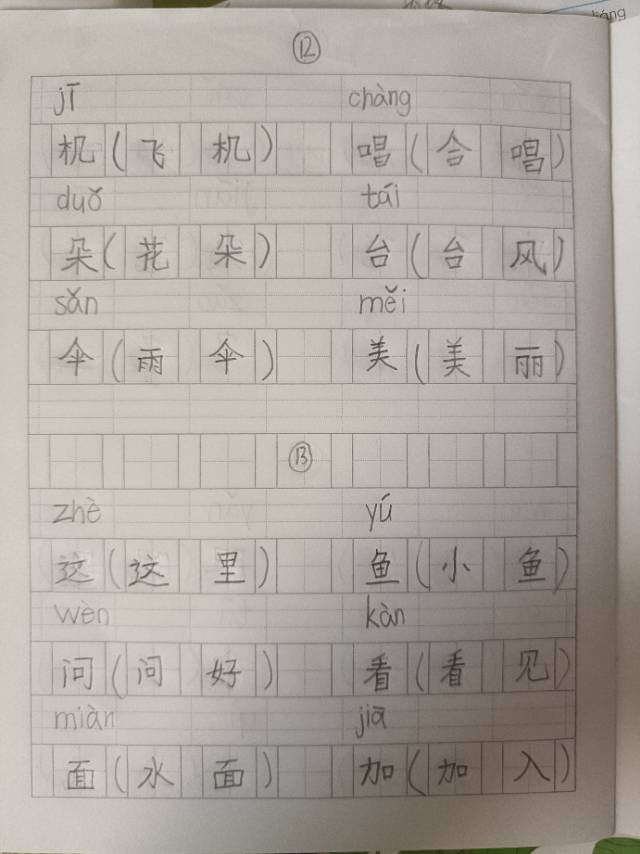 ⑫
jī chàng
机(飞机) 唱(合唱)
duǒ tái
朵(花朵) 台(台风)
sǎn měi
伞(雨伞) 美(美丽)
⑬
zhè yú
这(这里) 鱼(小鱼)
wèn kàn
问(问好) 看(看见)
miàn jiā
面(水面) 加(加入)